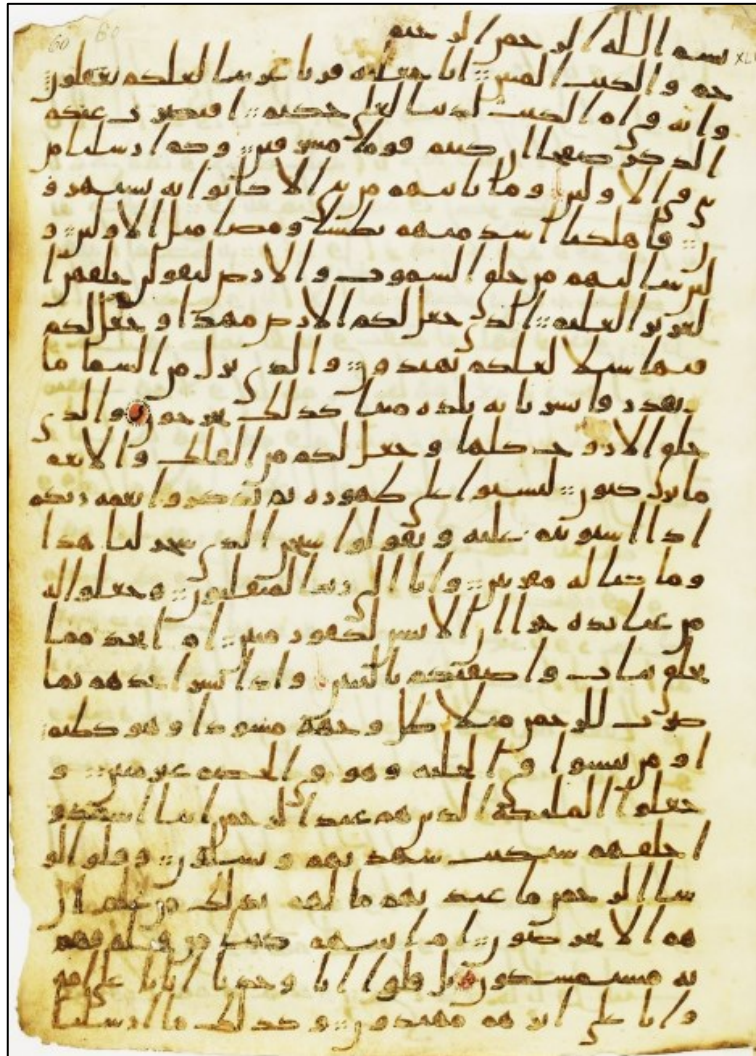 60 60
بسم الله الرحمن الرحيم
حم والكتب المبين انا جعلنه قرنا عربيا لعلكم تعقلون
وانه في ام الكتب لدينا لعلي حكيم افنضرب عنكم
الذكر صفحا ان كنتم قوما مسرفين وكم ارسلنا من
نبي في الاولين وما ياتيهم من نبي الا كانوا به يستهزو
ن فاهلكنا اشد منهم بطشا ومضا مثل الاولين و
لئن سالتهم من خلق السموت والارض ليقولن خلقهن ا
لعزيز العليم الذي جعل لكم الارض مهدا وجعل لكم
فيها سبلا لعلكم تهتدون والذي نزل من السما ما
بقدر فانشرنا به بلده ميتا كذلك تخرجون والذي
خلق الازوج كلها وجعل لكم من الفلك والانعم
ما تركبون لتستوا على ظهوره ثم تذكروا نعمه ربكم
اذا استويتم عليه وتقولوا سبحن الذي سخر لنا هذا
وما كنا له مقرنين وانا الى ربنا لمنقلبون وجعلوا له
من عباده جزا ان الانسن لكفور مبين ام اتخذ مما
يخلق بنات واصفيكم بالبنين واذا بشر احدهم بما
ضرب للرحمن مثلا ظل وجهه مسودا وهو كظيم
او من ينشوا في الحليه وهو في الخصم غير مبين و
جعلوا الملئكه الذين هم عبد الرحمن انثا اشهدو
ا خلقهم ستكتب شهدتهم ويسلون وقلوا لو
شا الرحمن ما عبدنهم ما لهم بذلك من علم ان
هم الا يخرصون ام اتينهم كتبا من قبله فهم
به مستمسكون بل قلوا انا وجدنا ابانا على امه
وانا على اثرهم مهتدون وكذلك ما ارسلنا